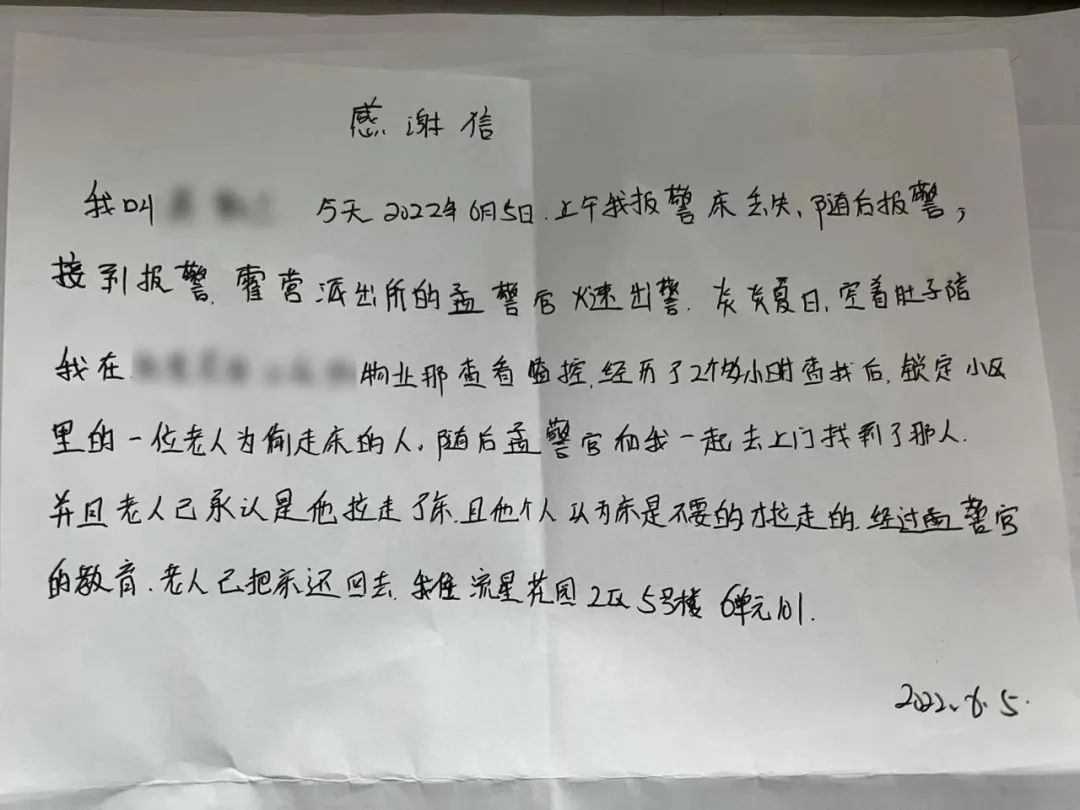 感谢信
我叫 今天2022年6月5日.上午我报警床丢失,随后报警,
接到报警.霍营派出所的孟警官火速出警.炎炎夏日,空着肚子陪
我在 物业那查看监控.经历了2个多小时查找后,锁定小区
里的一位老人为偷走床的人,随后孟警官和我一起去上门找到了那人.
并且老人已承认是他拉走了床.且他个人以为床是不要的才拉走的.经过孟警官
的教育.老人已把床还回去.我住流星花园2区5号楼6单元101.
2022.6.5.